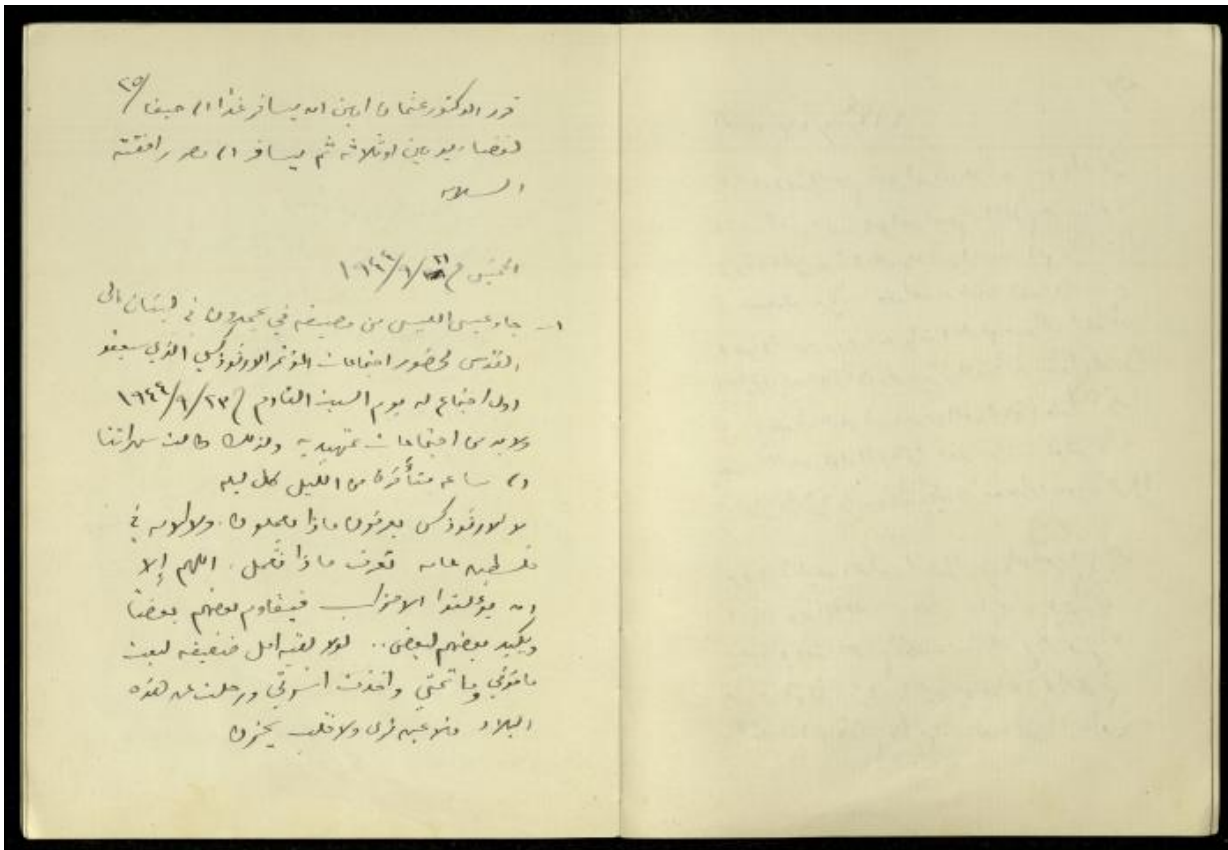 ٢٥/
قرر الدكتور عثمان امين ان يسافر غدا الى حيفا
لقضاء يومين او ثلاثة ثم يسافر الى مصر رافقته
السلامه
الخميس في ٢١/٩/١٩٤٤
١- جاء عيسى العيسى من مصيفه في بحمدون في لبنان الى
القدس لحضور اجتماعات المؤتمر الارثوذكسي الذي سيعقد
اول اجتماع له يوم السبت القادم في ٢٣/٩/١٩٤٤
ولا بد من اجتماعات تمهيديه ولذلك طالت سهراتنا
الى ساعه متأخرة من الليل كل ليله
لا الارثوذكس يعرفون ماذا يعملون. ولا الامه في
فلسطين عامه تعرف ماذا تعمل. اللهم إلا
ان يؤلفوا الاحزاب فيقاوم بعضهم بعضا
ويكيد بعضهم لبعض.. لولا بقية امل ضعيفه لبعت
ما فوقي وما تحتي واخذت اسرتي ورحلت عن هذه
البلاد فلا عين ترى ولا قلب يحزن